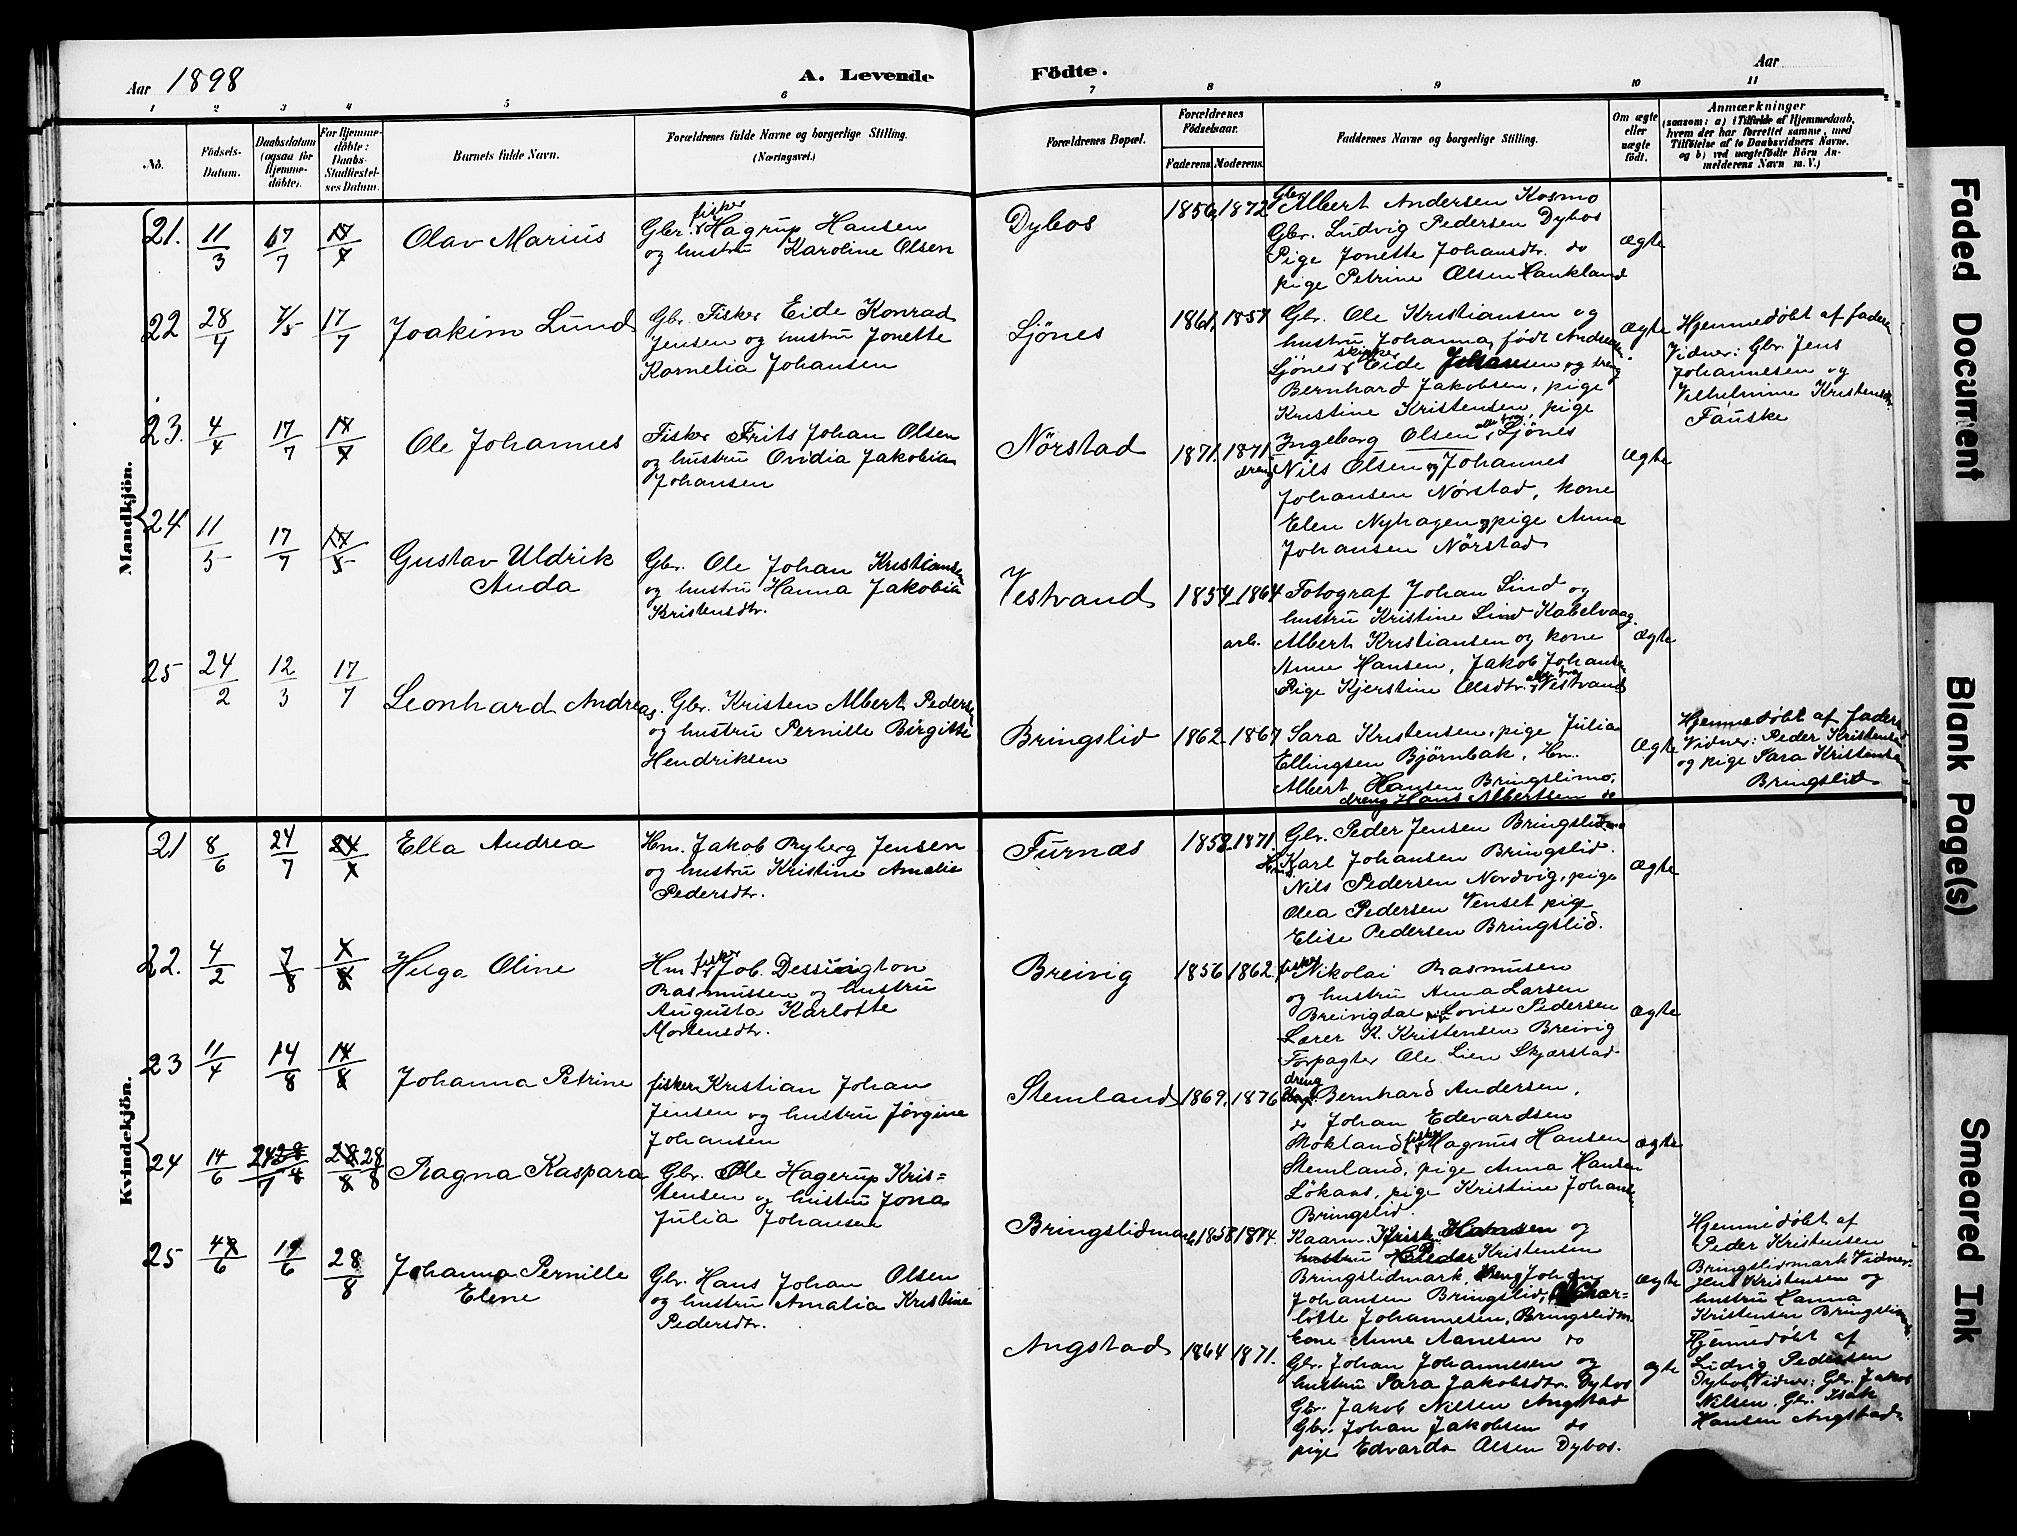 Aar 1898
A. Levende Födte.
Aar
1 2 3 4 5 6 7 8 9 10 11
No.
Födsels-Datum.
Daabsdatum (ogsaa for Hjemme-döbte).
For Hjemme-döbte: Daabs-Stadfæstel-ses Datum.
Barnets fulde Navn.
Forældrenes fulde Navne og borgerlige Stilling.
(Næringsvei.)
Forældrenes Bopæl.
Forældrenes Födselsaar.
Faderens. Moderens.
Faddernes Navne og borgerlige Stilling.
Om ægte eller uægte födt.
Anmærkninger
(saasom: a) i Tilfælde af Hjemmedaab,
hvem der har forrettet samme, med
Tilföielse af to Daabsvidners Navne.
og b) ved uægtefödte Börn An-
melderens Navn m. V.)
Mandkjön.
21. 11/3 17/7 17/7 Olav Marius
Gbr. fisker Hagrup Hansen
og hustru Karoline Olsen
Dybos 1856. 1872
Gbr Albert Andersen Kosmo
Gbr. Ludvig Pedersen Dybos
Pige Jonette Johansdtr. do
pige Petrine Olsen Hankland
Ægte
22 28/4 7/5 17/7 Joakim Lund
Gbr. Fisker Eide Konrad
Jensen og hustru Jonette
Kornelia Johansen
Ljönes 1861. 1857
Gbr. Ole Kristiansen og
hustru Johanna, født Andersen
Ljönes, skipper Eide Johansen og dreng
Bernhard Jakobsen, pige
Kristine Kristensen, pige
Ingeborg Olsen, alle bor Ljönes
Ægte
Hjemmedöbt af faderen
Vidner: Gbr Jens
Johannesen og
Vilhelmine Kristensdtr.
Fauske
23. 4/4 17/7 17/7 Ole Johannes
Fisker Frits Johan Olsen
og hustru Ovidia Jakobia
Johansen
Nørstad 1871. 1871
dreng Nils Olsen og Johannes
Johansen Nørstad, kone
Elen Nyhagen, og pige Anna
Johansen Nørstad
Ægte
24 11/5 17/7 17/5 Gustav Uldrik
Anda
Gbr. Ole Johan Kristiansen
og hustru Hanna Jakobia
Kristensdtr.
Vestvand 1854 1864
Fotograf Johan Lind og
hustru Kristine Lind Kabelvaag.
arb. Albert Kristiansen og kone
Anne Hansen, Jakob Johansen
Pige Kjerstine Olsdtr. alle bor Vestvand
Ægte
25 24/2 12/3 17/7 Leonhard Andreas.
Gbr. Kristen Albert Pedersen
og hustru Pernille Birgitte
Hendriksen
Bringslid 1862 1867
Sara Kristensen, pige Julia
Ellingsen Bjørnbak, Hm.
Albert Hansen Bringslimo,
dreng Hans Albertsen do
Ægte
Hjemmedöbt af faderen
Vidner: Peder Kristensen
og pige Sara Kristensen
Bringslid
Kvindekjön.
21 8/6 24/7 Ella Andrea
Hm. Jakob Ryberg Jensen
og hustru Kristine Amalie
Pedersdtr.
Furnæs 1858. 1871.
Gbr. Peder Jensen Bringslidmo
Karl Johansen Bringslid.
Nils Pedersen Nordvig, pige
Olea Pedersen Venset pige
Elise Pedersen Bringslid.
Ægte
22. 4/2 7/8 Helga Oline
Hm fisker Job. Dessington
Rasmussen og hustru
Augusta Karlotte
Mortensdtr.
Breivig 1856 1862.
fisker Nikolai Rasmusen
og hustru Anna Larsen
Breivigdal pige Lovise Pedersen
Lærer K. Kristensen Breivig
Forpagter Ole Lien Skjærstad
Ægte
23 11/4 14/8 14/8 Johanna Petrine
fisker Kristian Johan
Jensen og hustru Jørgine
Johansen
Stemland 1869. 1876
dreng Bernhard Andersen,
do Johan Edevardsen
Mokland, fisker Magnus Hansen
Stemland, pige Anna Hansen
Løkaas, pige Kristine Johansen
Bringslid.
Ægte
24 14/6 24/7 28/8 Ragna Kaspara
Gbr. Ole Hagerup Kris=
tensen og hustru Jona
Julia Johansen
Bringslidmark 1858. 1874.
Kaarm.
hustru Peder Kristensen
Bringslidmark, dreng Johan
Johansen Bringslid, Char-
lotte Johannesen, Bringslidm.
kone Anne Aanesen do
Ægte
Hjemmedöbt af
Peder Kristensen
Bringslidmark Vidner:
Kristensen og
hustru Hanna
Kristensen Bringslidmark
25 4/6 19/6 28/8 Johanna Pernille
Elene
Gbr. Hans Johan Olsen
og hustru Amalia Kristine
Pedersdtr.
Angstad 1864 1871.
Gbr. Johan Johannesen og
hustru Sara Jakobsdtr. Dybos
Gbr. Jakob Nilsen Angstad
Gbr. Johan Jakobsen do
pige Edvarda Olsen Dybos.
Ægte
Hjemmedöbt af
Ludvig Pedersen
Dybos, Vidner: Gbr. Jakob
Nilsen, Gbr. Isak
Hansen Angstad
Faded Document
Blank Page(s)
Smeared Ink